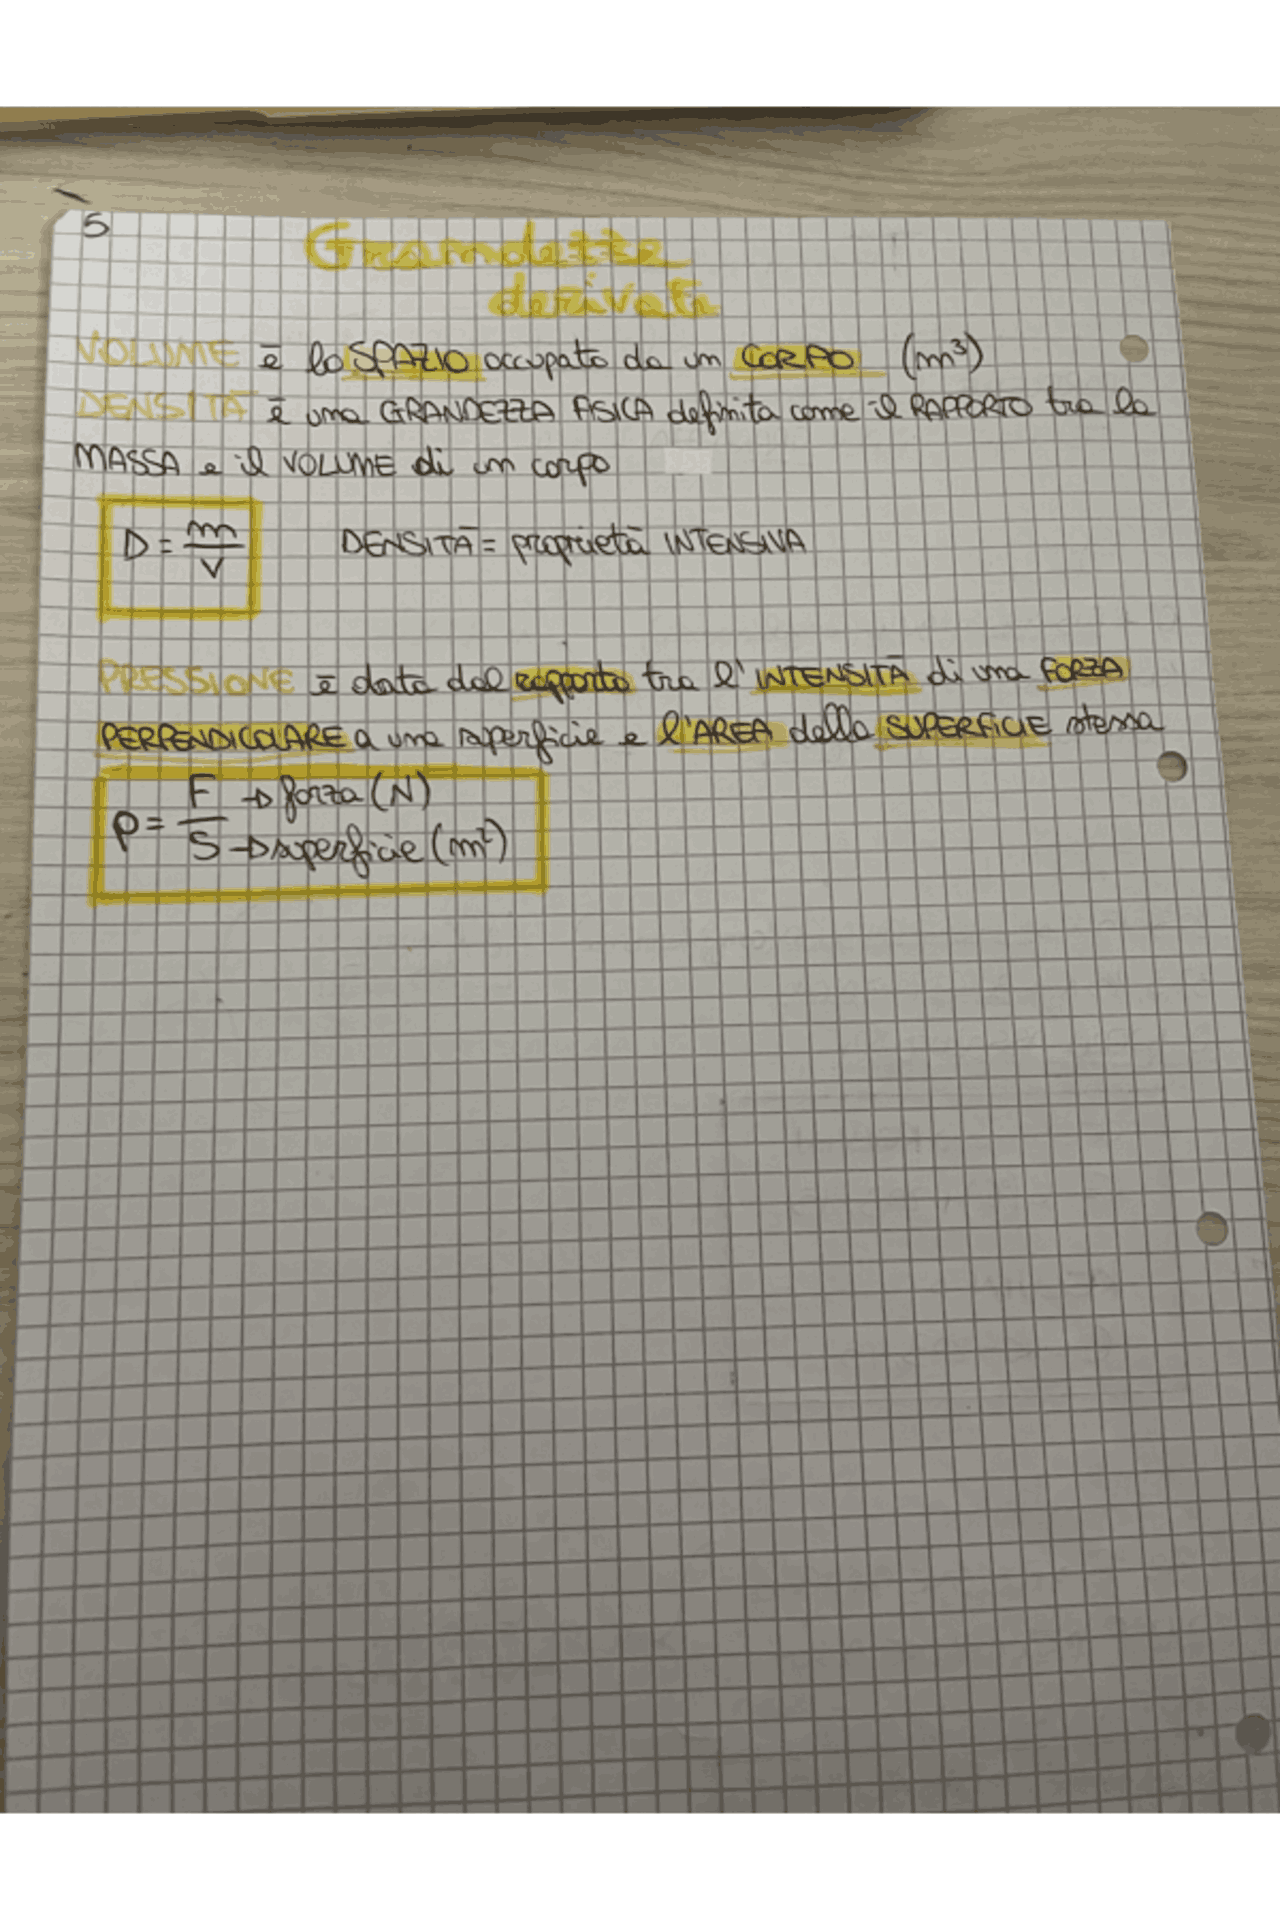 5
Grandezze
derivate
VOLUME è lo SPAZIO occupato da un CORPO (m³)
DENSITÀ è una GRANDEZZA FISICA definita come il RAPPORTO tra la
MASSA e il VOLUME di un corpo
D = m/V DENSITÀ = proprietà INTENSIVA
PRESSIONE è data dal rapporto tra l'INTENSITÀ di una FORZA
PERPENDICOLARE a una superficie e l'AREA della SUPERFICIE stessa
P = F → forza (N)
S → superficie (m²)